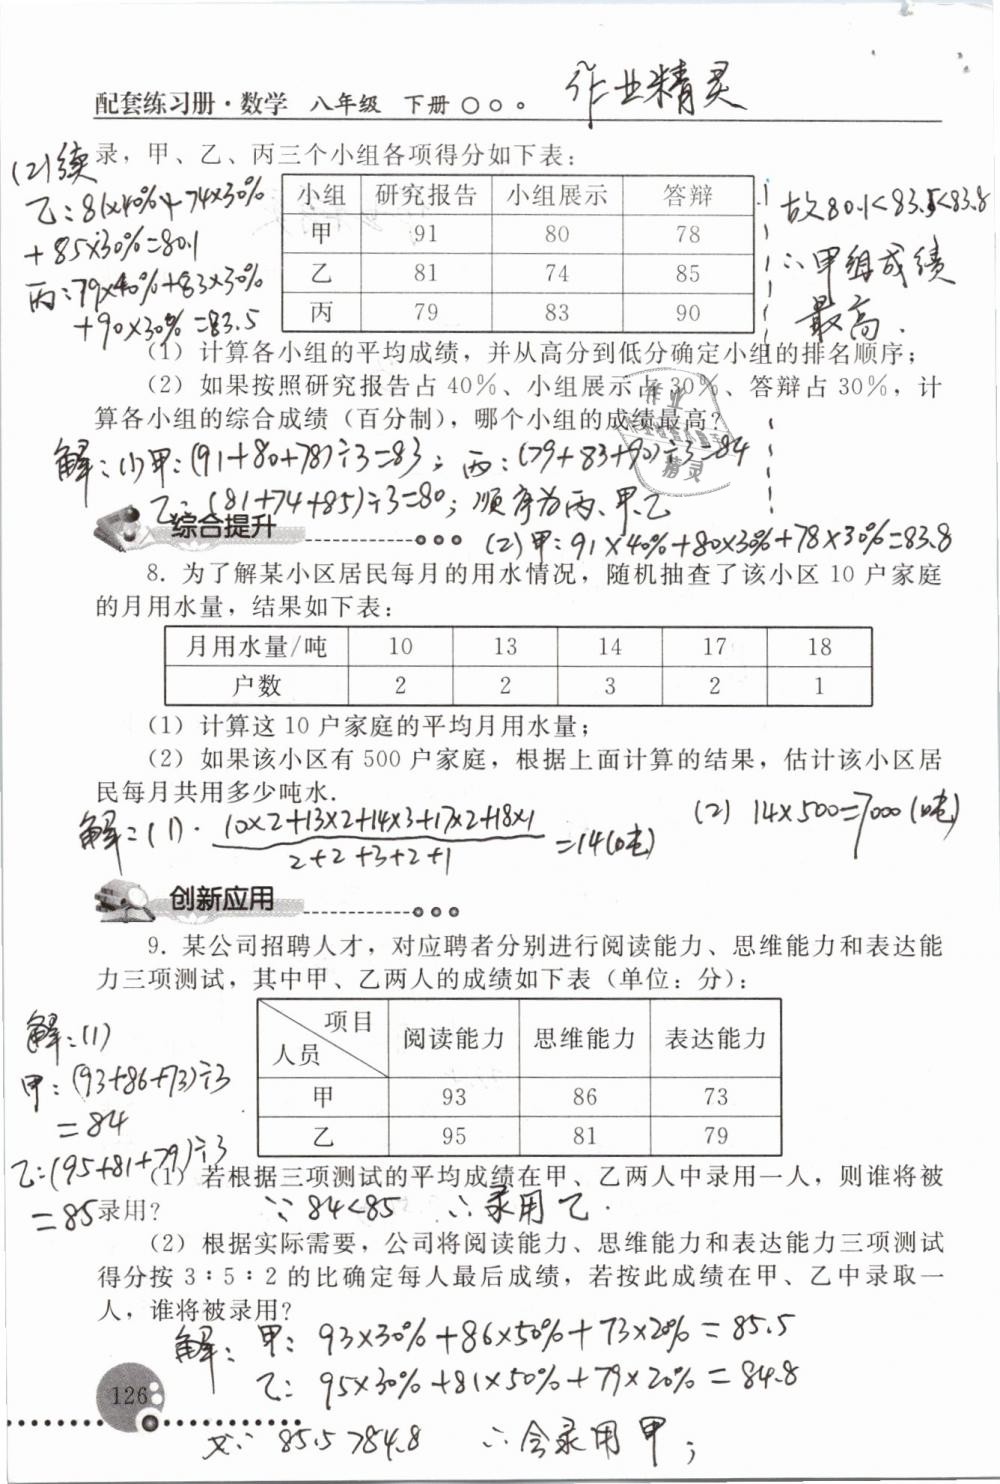 配套练习册·数学 八年级 下册
作业精灵
录，甲、乙、丙三个小组各项得分如下表：
(2)续
乙：81×40%+74×30%
+85×30%=80.1
丙：79×40%+83×30%
+90×30%=83.5
小组 研究报告 小组展示 答辩
甲 91 80 78
乙 81 74 85
丙 79 83 90
故80.1<83.5<83.8
∴甲组成绩
最高.
(1) 计算各小组的平均成绩，并从高分到低分确定小组的排名顺序；
(2) 如果按照研究报告占 40%、小组展示占 30%、答辩占 30%，计
算各小组的综合成绩（百分制），哪个小组的成绩最高？
作业
精灵
解：(1)甲：(91+80+78)÷3=83；丙：(79+83+90)÷3=84
乙：(81+74+85)÷3=80；顺序为丙、甲、乙
综合提升
(2)甲：91×40%+80×30%+78×30%=83.8
8. 为了解某小区居民每月的用水情况，随机抽查了该小区 10 户家庭
的月用水量，结果如下表：
月用水量/吨 10 13 14 17 18
户数 2 2 3 2 1
(1) 计算这 10 户家庭的平均月用水量；
(2) 如果该小区有 500 户家庭，根据上面计算的结果，估计该小区居
民每月共用多少吨水.
解：(1)· 10×2+13×2+14×3+17×2+18×1
2+2+3+2+1
=14(吨)
(2) 14×500=7000(吨)
创新应用
9. 某公司招聘人才，对应聘者分别进行阅读能力、思维能力和表达能
力三项测试，其中甲、乙两人的成绩如下表（单位：分）：
项目 阅读能力 思维能力 表达能力
人员
甲 93 86 73
乙 95 81 79
解：(1)
甲：(93+86+73)÷3
=84
乙：(95+81+79)÷3
=85
(1) 若根据三项测试的平均成绩在甲、乙两人中录用一人，则谁将被
录用？
∵84<85 ∴录用乙.
(2) 根据实际需要，公司将阅读能力、思维能力和表达能力三项测试
得分按 3∶5∶2 的比确定每人最后成绩，若按此成绩在甲、乙中录取一
人，谁将被录用？
解：甲：93×30%+86×50%+73×20%=85.5
乙：95×30%+81×50%+79×20%=84.8
又∵85.5>84.8 ∴会录用甲；
126